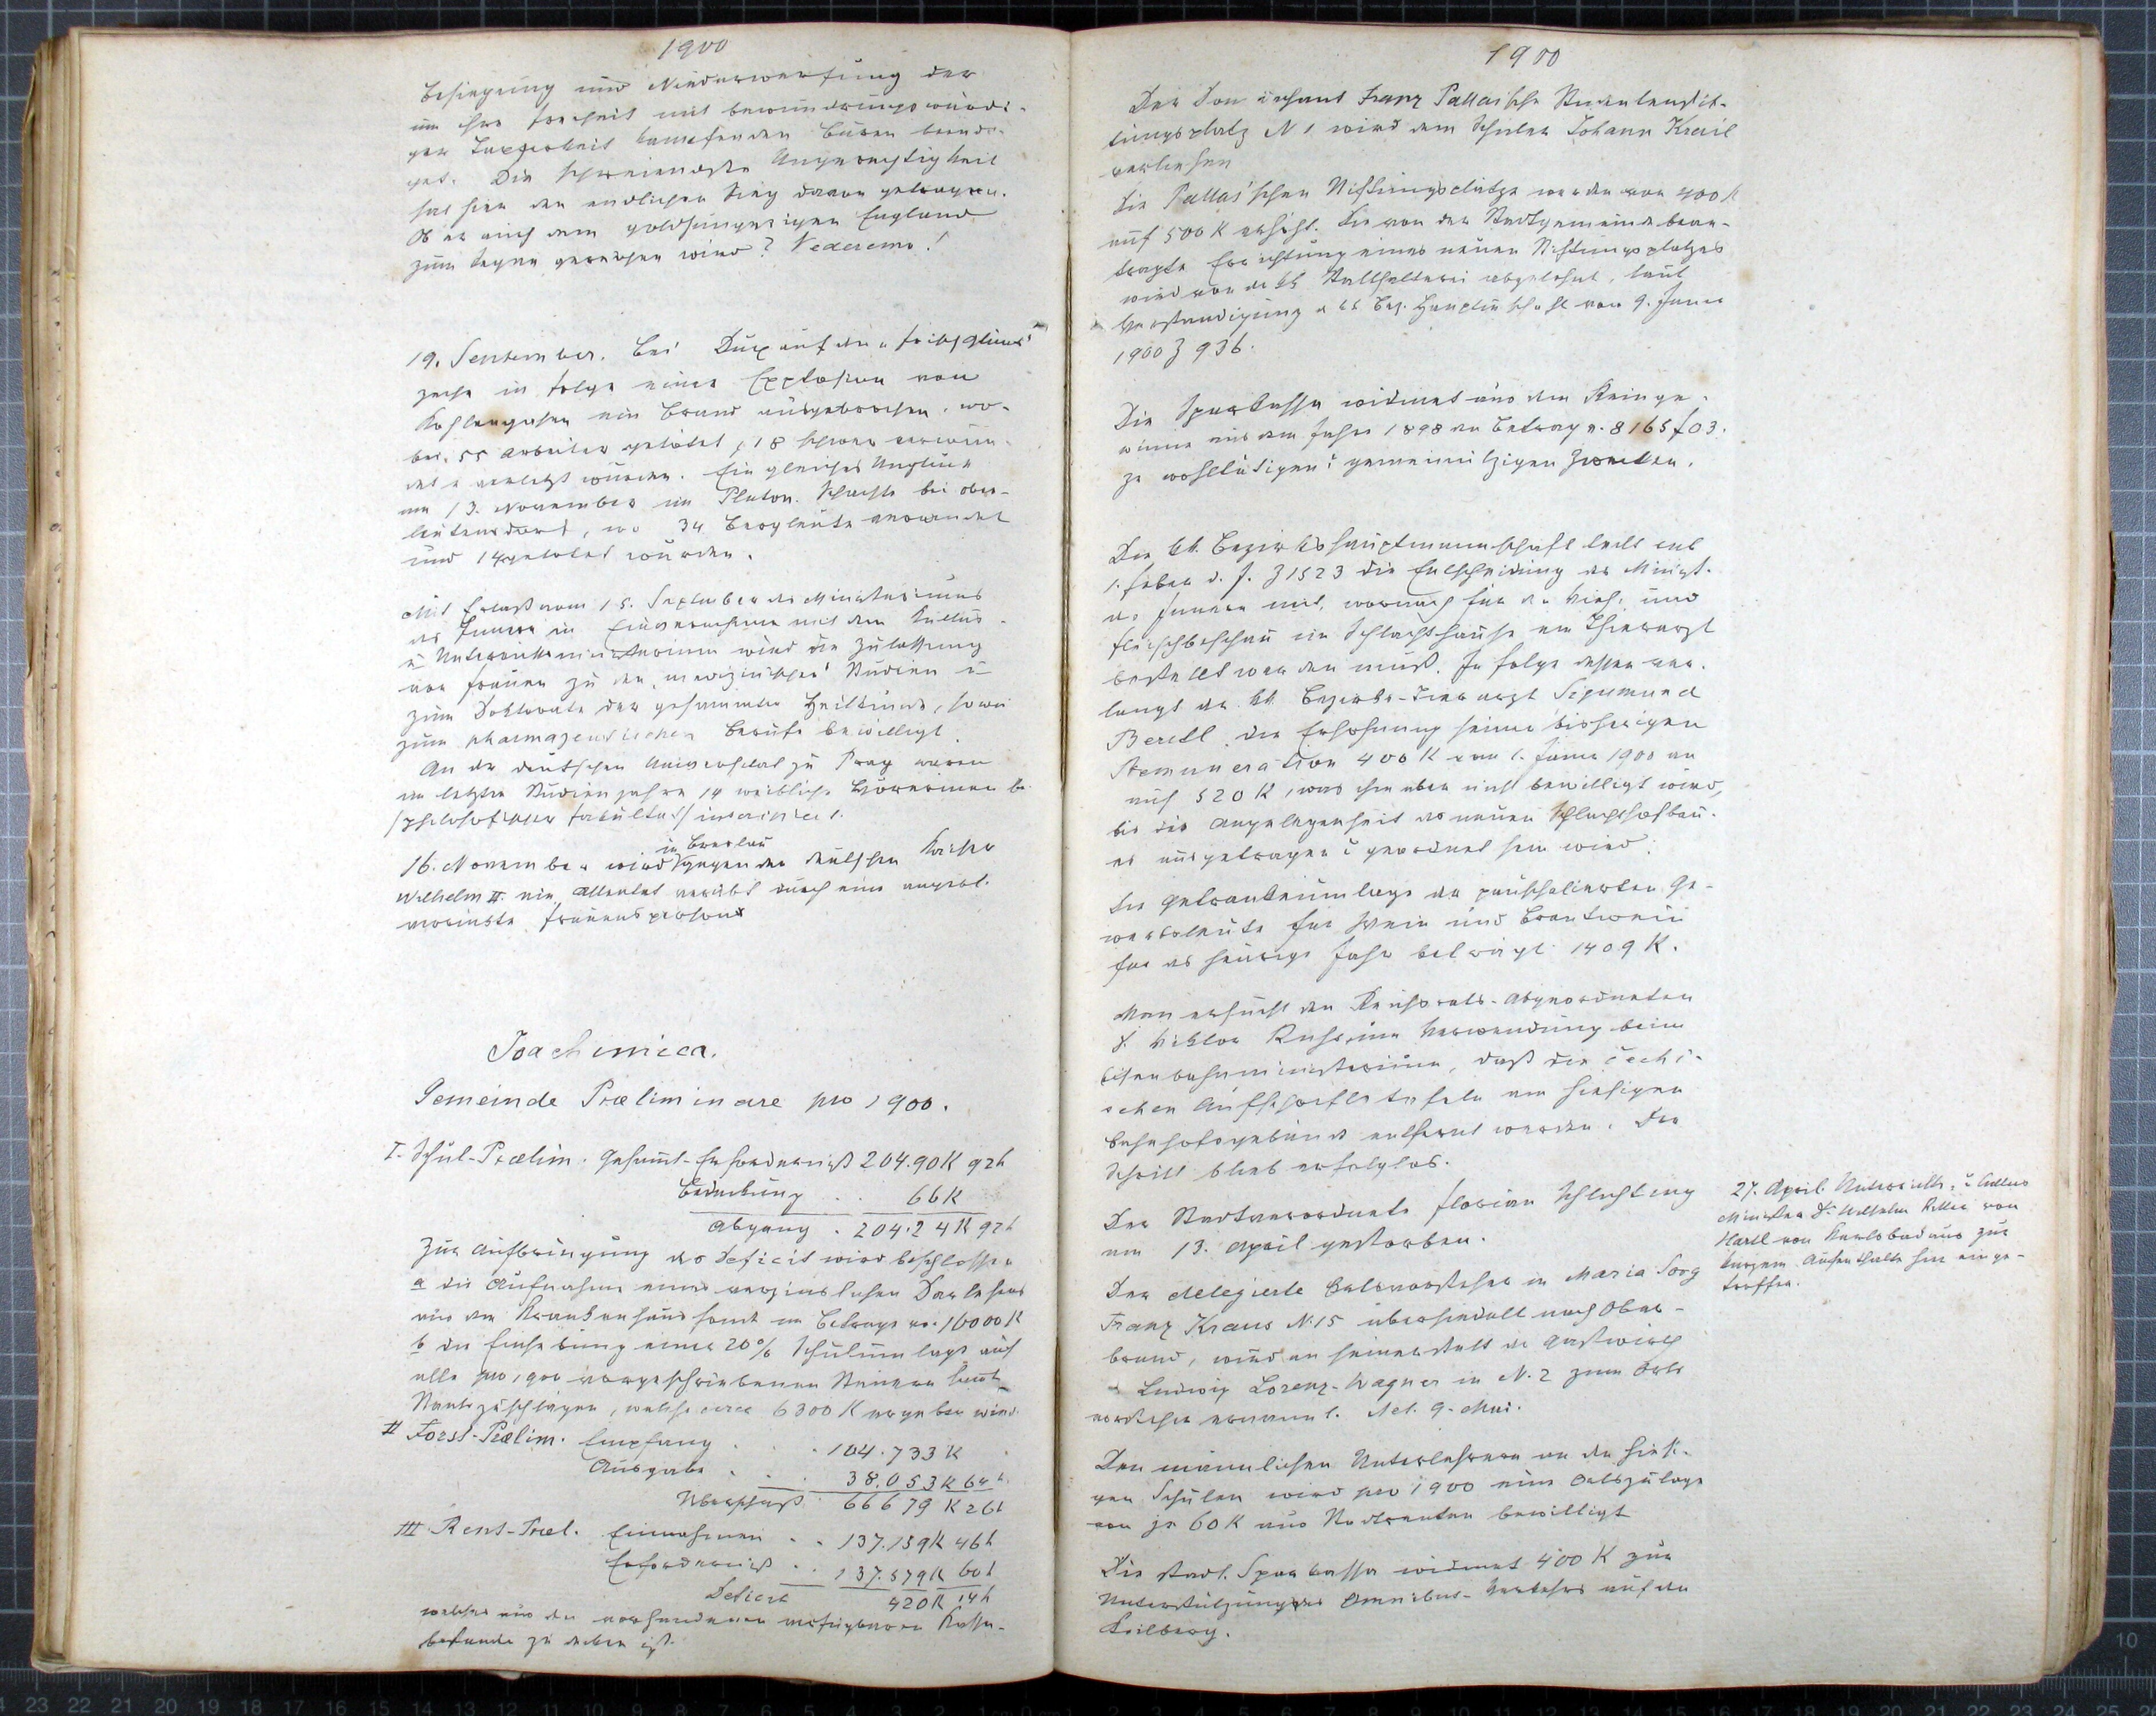 1900
Besiegung und Niederwerfung der
um ihre Freiheit mit bewundrungswürdi-
ger Tapferkeit kämpfenden Buren beendi-
get. Die schreiendste Ungerechtigkeit
hat hier den endlichen Sieg davon getragen.
Ob er auch dem goldhungerigen England
zum Segen gereichen wird? Vederemo!
19. September. Bei Dux auf der "Frischglück"
zeche in Folge einer Explosion von
Kohlengasen ein Brand ausgebrochen, wo-
bei 55 Arbeiter getötet, 18 schwer verwun-
det u verletzt wurden. Ein gleiches Unglück
am 13. November im Pluton-Schachte bei Ober-
leutensdorf, wo 34 Bergleute verwundet
und 14 getötet wurden.
Mit Erlaß vom 15. September des Ministeriums
des Innern im Einvernehmen mit dem Kultus-
u Unterrichtsministerium wird die Zulassung
von Frauen zu den medizinischen Studien u
zum Doktorate der gesammten Heilkunde, sowie
zum pharmazeutischen Berufe bewilligt.
An der deutschen Universität zu Prag waren
im letzten Studienjahre 14 weibliche Hörerinnen der
/philosofischen Fakultät/ inscripiert.
in Breslau
16. November wird gegen den deutschen Kaiser
Wilhelm II. ein Attentat verübt durch eine angebl.
verwirrte Frauensperson
Joachimica.
Gemeinde Præliminare pro 1900.
I. Schul-Prælim. Gesamt-Erforderniß 204.90K 92h
Bedeckung . . 66K
Abgang . 204.24K 92h
Zur Aufbringung des Deficit wird beschlossen
a die Aufnahme eines verzinslichen Darlehens
aus dem Krankenhausfond im Betrage von 16000K
b die Einhebung einer 20% Schulumlage auf
alle pro 1900 vorgeschriebenen Steuern samt
Staatszuschlägen, welche circa 6300K ergeben wird.
II Forst-Prælim. Empfang . . . 104.733K
Ausgabe . . . 38.053K 64h
Überschuß 66679K 26h
III Rent-Præl. Einnahmen . . 137.159K 46h
Erforderniß . . 137.579K 60h
Deficit 420K 14h
welches aus den vorhandenen verfügbaren Kassa-
bestande zu decken ist.
1900
Der Domdechant Franz Pallas'sche Studentenstif-
tungsplatz N 1 wird dem Schüler Johann Kreil
verliehen
Die Pallas'schen Stiftungsplätze werden von 400K
auf 500K erhöht. Die von der Stadtgemeinde bean-
tragte Errichtung eines neuen Stiftungsplatzes
wird von der kk Statthalterei abgelehnt, laut
Verständigung d kk Bez. Hauptmschaft vom 9. Jänner
1900 Z 936.
Die Sparkassa widmet aus dem Reinge-
winne aus dem Jahre 1898 den Betrag v. 8165 f 03.
zu wohltätigen u gemeinnützigen Zwecken.
Die kk. Bezirkshauptmannschaft teilt sub
1. Feber d. J. Z 1523 die Entscheidung des Minist.
des Innern mit, wornach für die Vieh- und
Fleischbeschau im Schlachthause ein Thierarzt
bestellt werden muß. In Folge dessen ver-
langt der kk Bezirks-Tierarzt Sigmund
Beretl die Erhöhung seiner bisherigen
Remuneration 400K vom 1. Jänner 1900 an
auf 520K, was ihm aber nicht bewilligt wird,
bis die Angelegenheit des neuen Schlachthofbau-
es ausgetragen u geordnet sein wird.
Die Getränkeumlage der pauschalierten Ge-
werbsleute für Wein und Brantwein
für das heurige Jahr beträgt 1409 K.
Man ersucht den Reichsrats-Abgeordneten
D. Viktor Russ um Verwendung beim
Eisenbahnministerium, daß die čechi-
schen Aufschriftstafeln am hiesigen
Bahnhofsgebäude entfernt werden. Der
Schritt blieb erfolglos.
Der Stadtverordnete Florian Schlosting
am 13. April gestorben.
Der delegierte Ortsvorsteher in Maria Sorg
Franz Kraus N. 15 übersiedelt nach Ober-
brand, wird an seinerstatt der Gastwirt
Ludwig Lorenz-Wagner in N. 2 zum Orts
vorsteher ernannt. Act. 9. Mai.
Den männlichen Unterlehrern an den hiesi-
gen Schulen wird pro 1900 eine Ortszulage
von je 60K aus Stadtrenten bewilligt
Die städt. Sparkassa widmet 400 K zur
Unterstützung des Omnibus-Verkehrs auf den
Keilberg.
27. April. Unterrichts- u Cultus
Minister Dr Wilhelm Ritter von
Hartl von Karlsbad aus zur
kurzem Aufenthalte hier einge-
troffen.